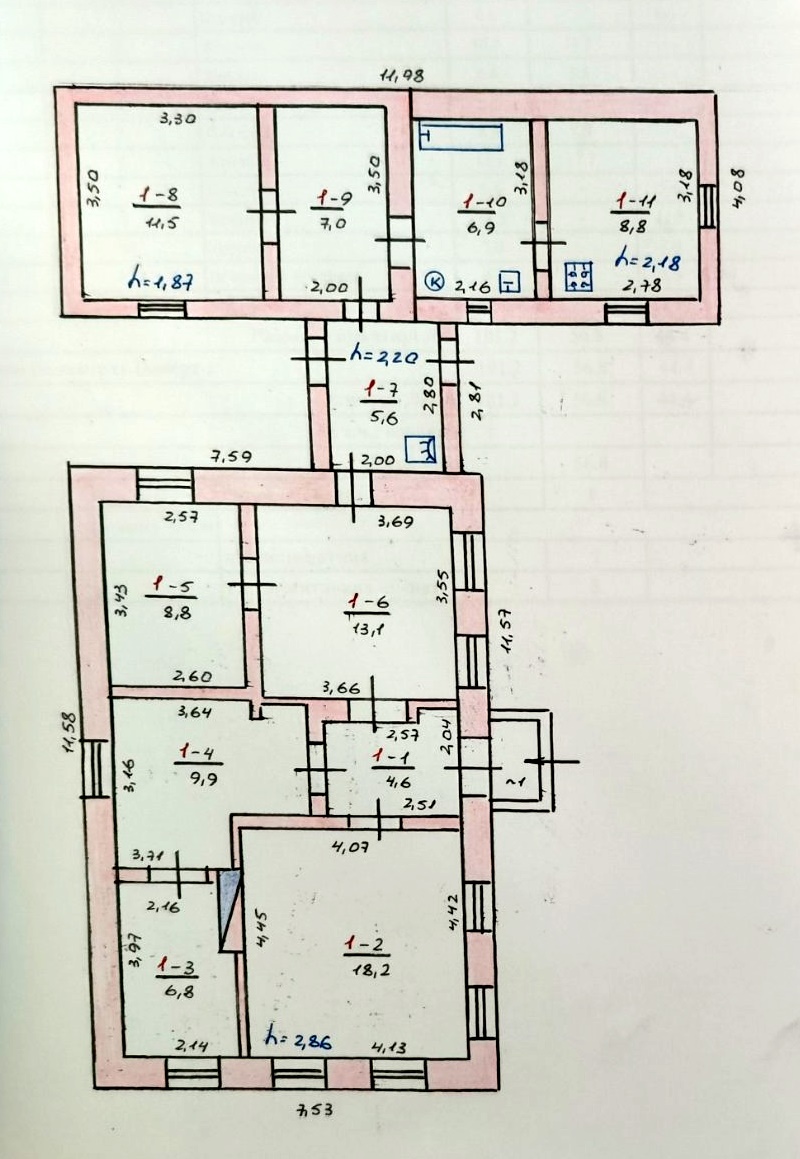 11,98
3,30
3,50
1-8
11,5
h=1,87
3,50
1-9
7,0
2,00
3,18
1-10
6,9
К
2,16
Т
3,18
1-11
8,8
h=2,18
2,78
4,08
h=2,20
1-7
5,6
2,80
2,81
2,00
7,59
2,57
3,43
1-5
8,8
2,60
3,69
3,55
1-6
13,1
3,66
11,57
11,58
3,64
3,16
1-4
9,9
3,71
2,57
2,04
1-1
4,6
2,51
~1
4,07
4,45
4,42
1-2
18,2
h=2,86
4,13
2,16
3,97
1-3
6,8
2,14
7,53